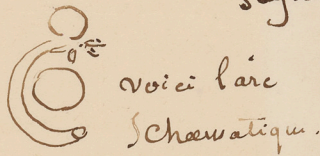 voici l'arc
Schœmatique.